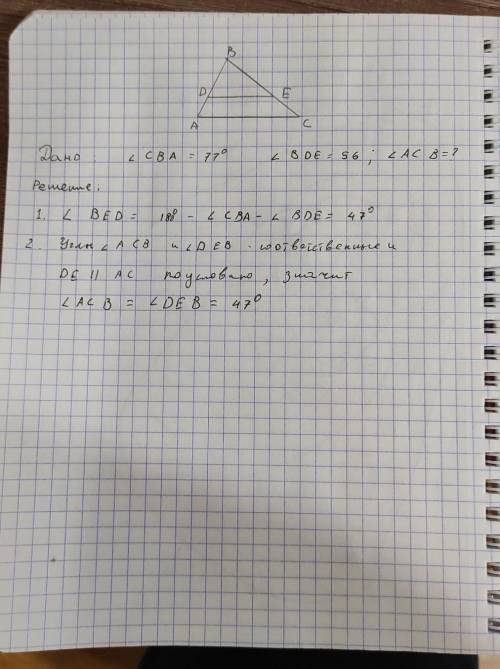 B
D E
A C
Дано : ∠ CBA = 77° ∠ BDE = 56 ; ∠ ACB = ?
Решение:
1. ∠ BED = 180° - ∠ CBA - ∠ BDE = 47°
2. Углы ∠ ACB и ∠ DEB - соответственные и
DE || AC по условию, значит
∠ ACB = ∠ DEB = 47°